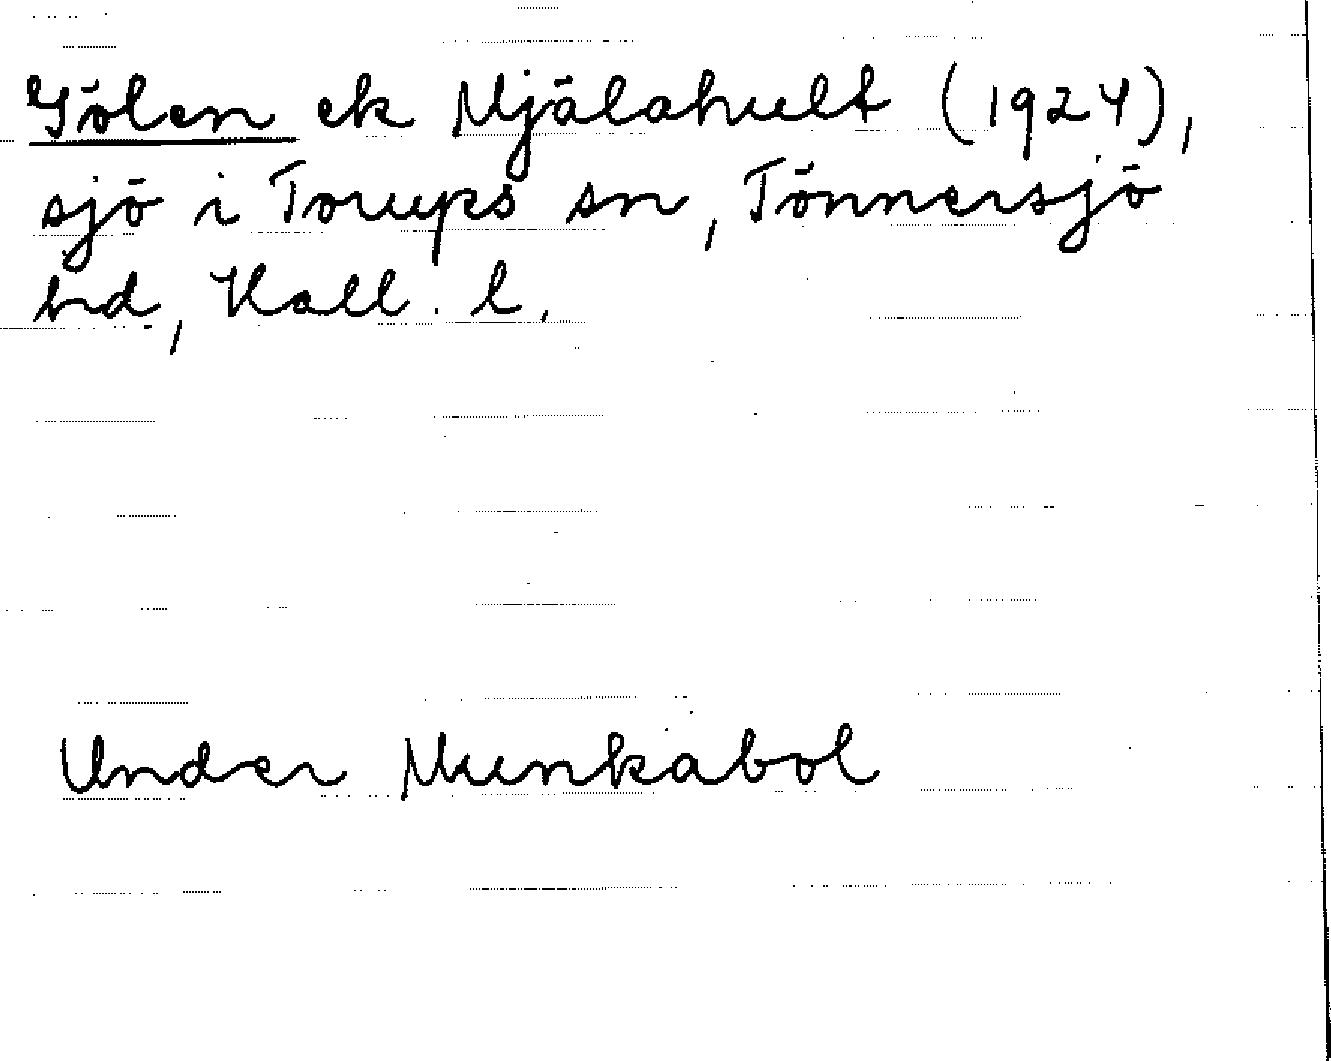 Gölen ek Mjälahult (1924),
sjö i Torups sn, Tönnersjö
hd, Hall. l.
Under Munkabol